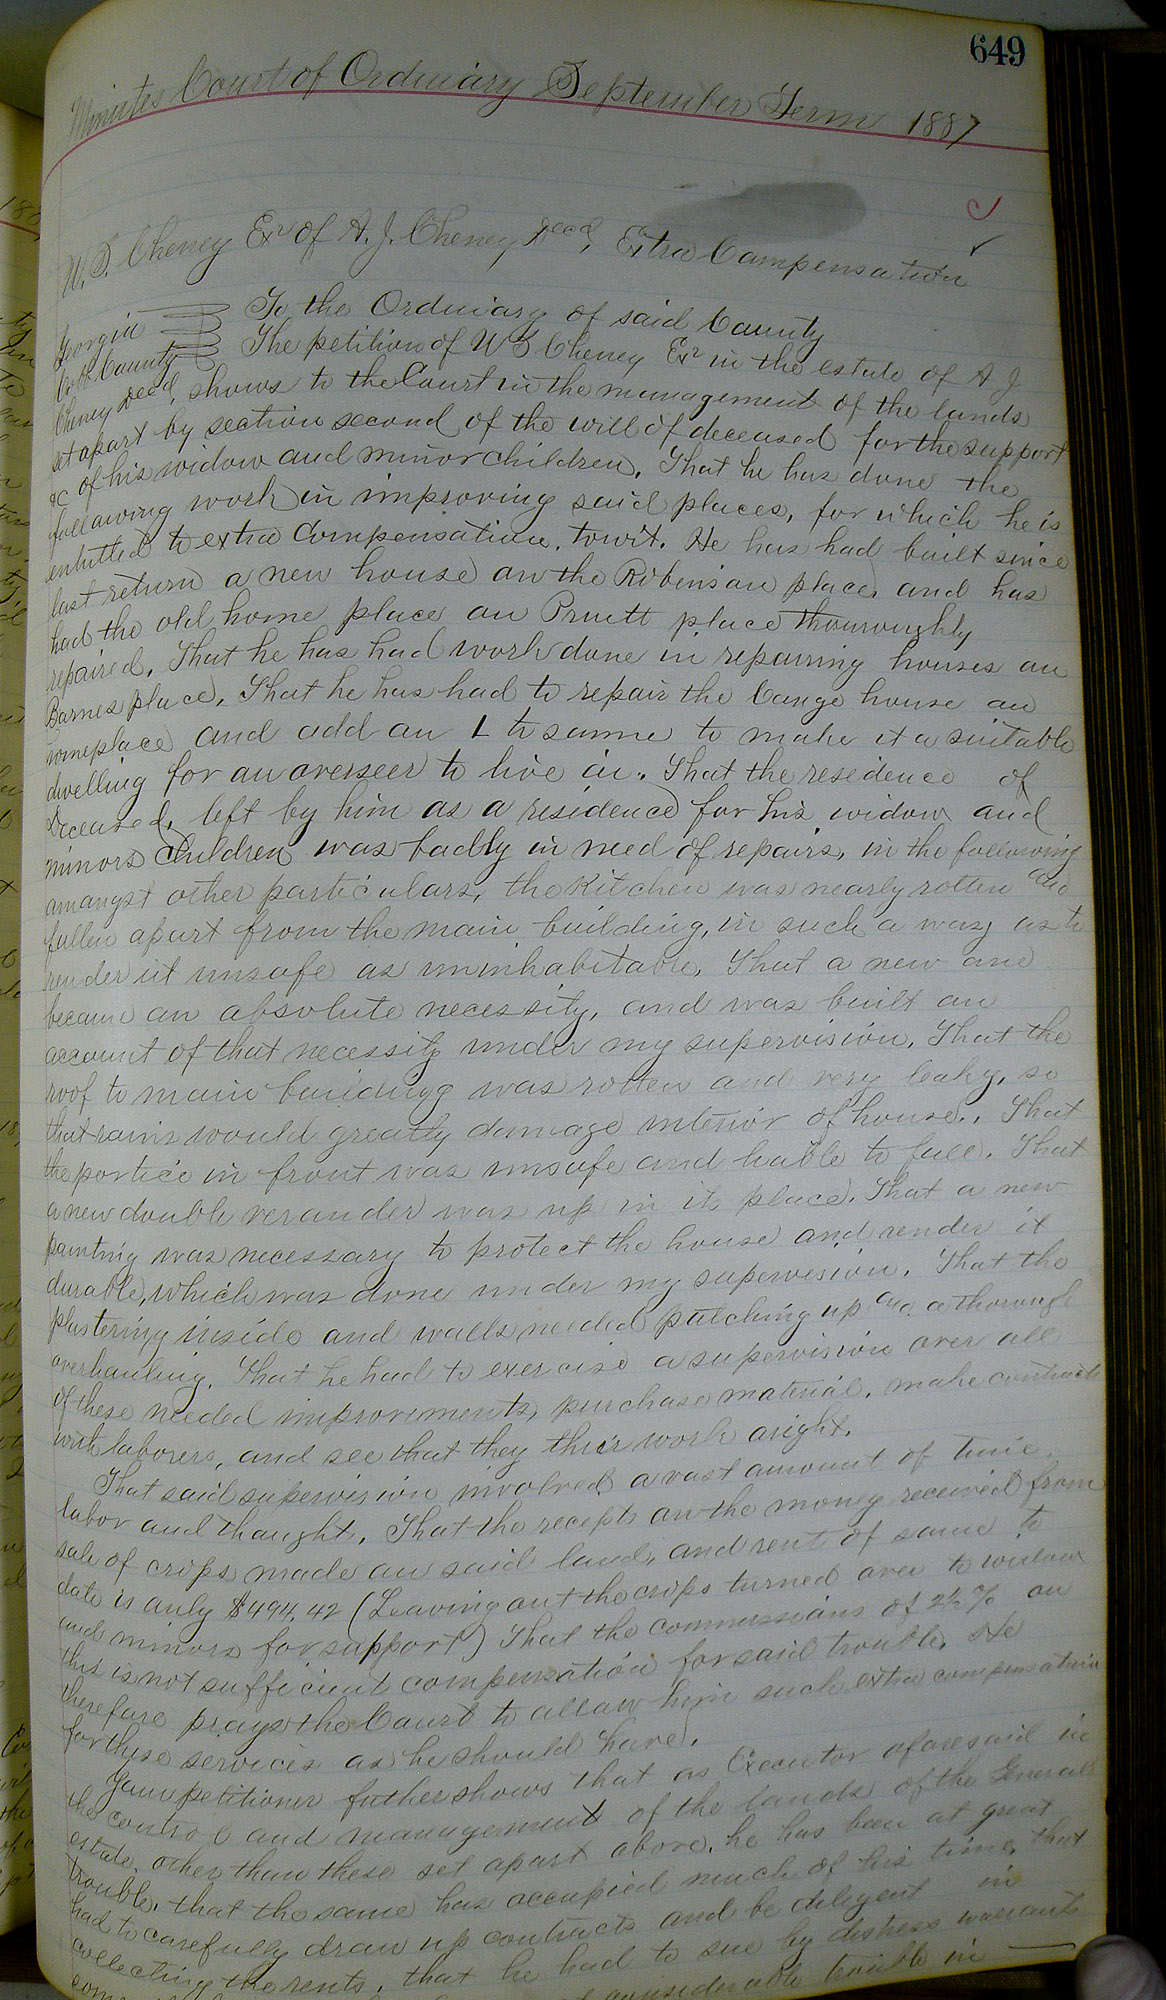 649
Minutes Court of Ordinary September Term 1887
W. S. Cheney Exr of A. J. Cheney Decd, Extra Compensation
Georgia To the Ordinary of said County
County The petition of W S Cheney Exr in the estate of A J
Cheney Decd, shows to the Court in the management of the lands
set apart by section second of the will of deceased for the support
&c of his widow and minor children. That he has done the
following work in improving said places, for which he is
entitled to extra Compensation, towit. He has had built since
last return a new house on the Robinson place, and has
had the old home place on Pruett place thouroughly
repaired. That he has had work done in repairing houses on
Barnes place. That he has had to repair the house on
homeplace and add an L to same to make it a suitable
dwelling for an overseer to live in. That the resedence of
deceased, left by him as a residence for his widow and
minors children was badly in need of repairs, in the following
amongst other particulars, the Kitchen was nearly rotten and
fallen apart from the main building, in such a way as to
render it unsafe as uninhabitable. That a new one
became an absolute necessity, and was built on
account of that necessity under my supervision. That the
roof to main building was rotten and very leaky, so
that rains would greatly damage interior of house. That
the portico in front was unsafe and liable to fall. That
a new double verander was up in its place. That a new
painting was necessary to protect the house and render it
durable, which was done under my supervision. That the
plastering inside and walls needed patching up and a thorough
overhauling. That he had to exercise a supervision over all
of these needed improvements, purchase material, make contracts
with laborers, and see that they their work aright.
That said supervision involved a vast amount of time,
labor and thought. That the recepts on the money received from
sale of crops made on said land, and rent of same to
date is only $494.42 (Leaving out the crops turned over to widow
and minors for support) That the commissions of 2½ % on
this is not sufficient compensation for said trouble. He
therefore prays the Court to allow him such extra compensation
for these services as he should have.
Your petitioner futher shows that as Executor aforesaid in
the control and management of the lands of the General
estate, other than these set apart above, he has been at great
trouble, that the same has occupied much of his time, that
had to carefully draw up contracts and be diligent in
collecting the rents, that he had to sue by distress warrants
considerable trouble in